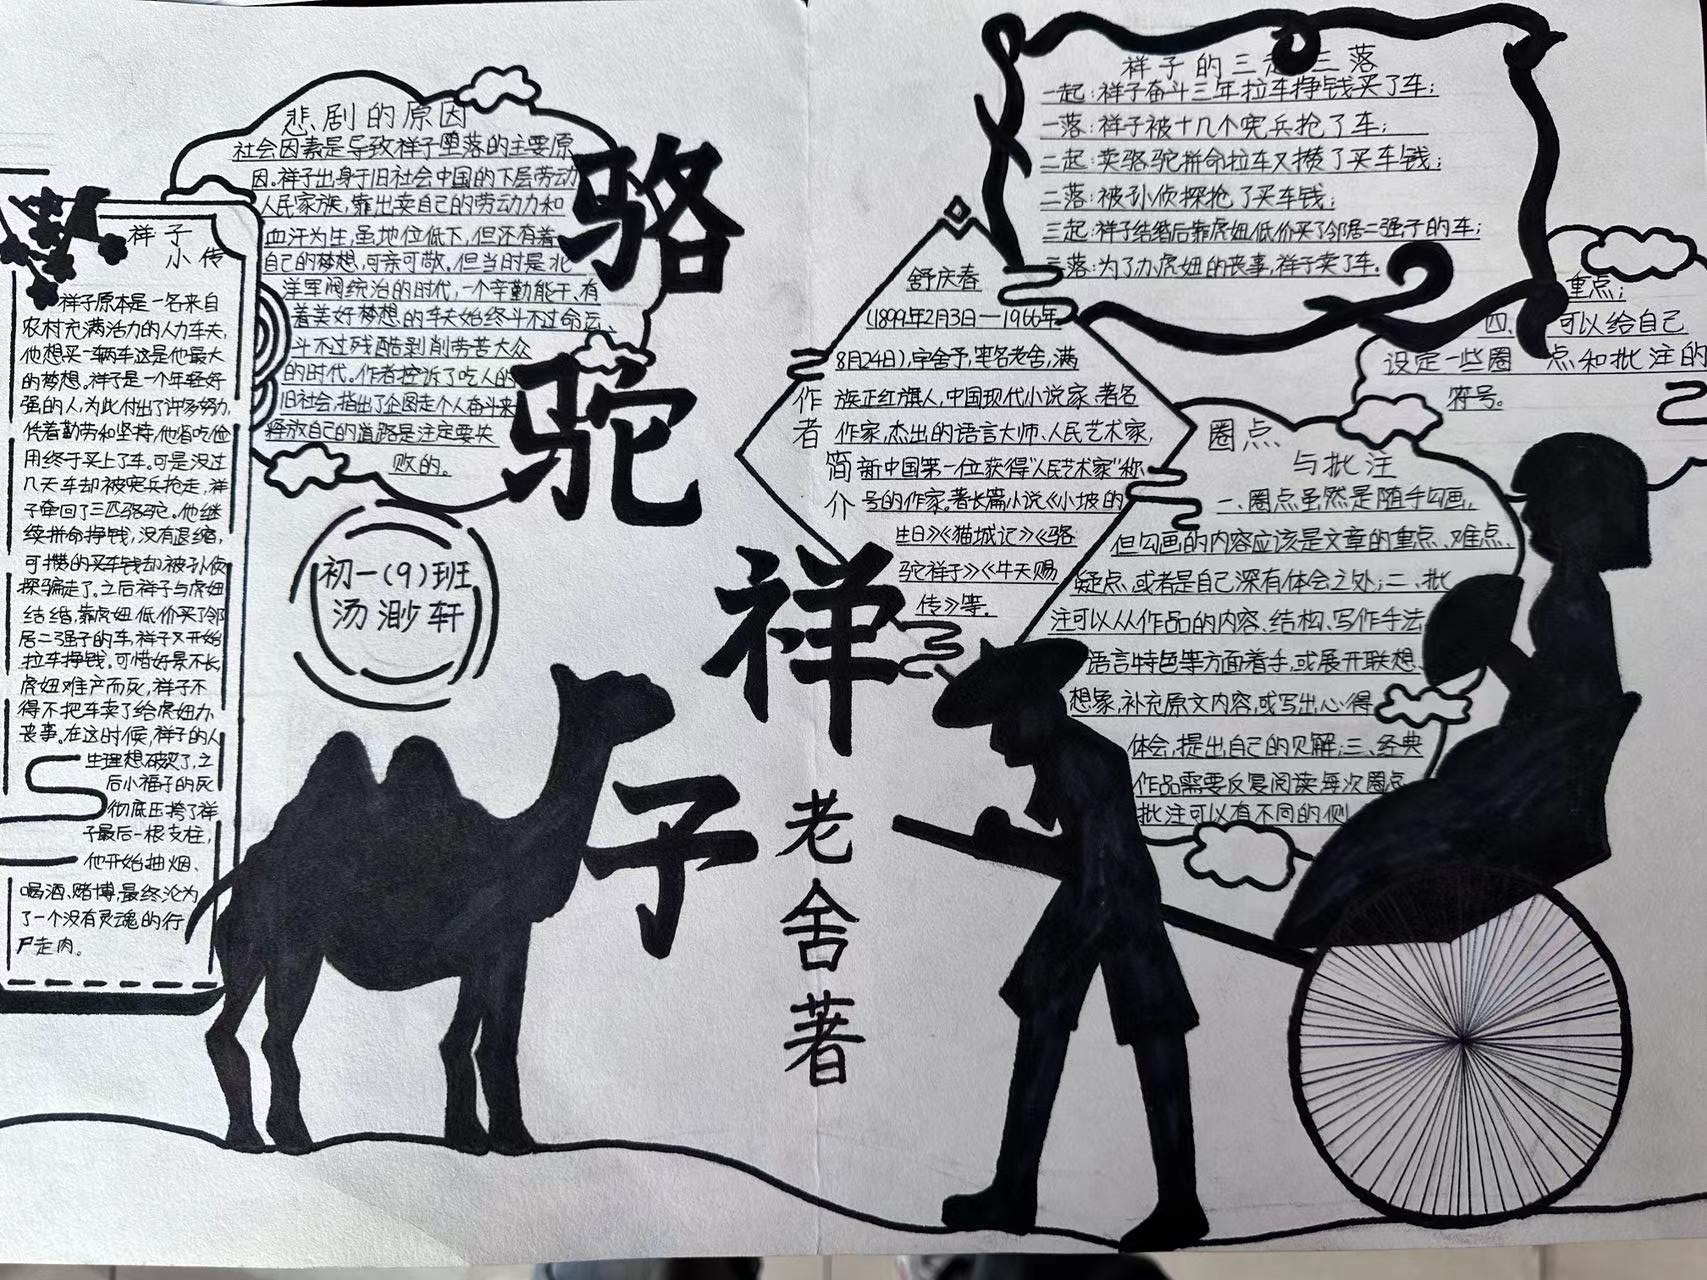 骆驼祥子
老舍著
初一(9)班
汤渺轩
祥子
小传
祥子原本是一名来自
农村充满活力的人力车夫,
他想买一辆车这是他最大
的梦想。祥子是一个年轻好
强的人,为此付出了许多努力,
凭着勤劳和坚持,他省吃俭
用终于买上了车。可是没过
几天车却被宪兵抢走,祥
子牵回了三匹骆驼。他继
续拼命挣钱,没有退缩,
可攒的买车钱却被孙侦
探骗走了。之后祥子与虎妞
结婚,靠虎妞低价买了邻
居二强子的车,祥子又开始
拉车挣钱。可惜好景不长,
虎妞难产而死,祥子不
得不把车卖了给虎妞办
丧事。在这时候,祥子的人
生理想破灭了,之
后小福子的死
彻底压垮了祥
子最后一根支柱,
他开始抽烟、
喝酒、赌博,最终沦为
了一个没有灵魂的行
尸走肉。
悲剧的原因
社会因素是导致祥子堕落的主要原
因。祥子出身于旧社会中国的下层劳动
人民家族,靠出卖自己的劳动力和
血汗为生,虽地位低下,但还有着
自己的梦想,可亲可敬。但当时是北
洋军阀统治的时代,一个辛勤能干、有
着美好梦想的车夫始终斗不过命运、
斗不过残酷剥削劳苦大众
的时代。作者控诉了吃人的
旧社会,指出了企图走个人奋斗来
释放自己的道路是注定要失
败的。
作者简介
舒庆春
(1899年2月3日—1966年
8月24日),字舍予,笔名老舍,满
族正红旗人,中国现代小说家、著名
作家,杰出的语言大师、人民艺术家,
新中国第一位获得“人民艺术家”称
号的作家。著长篇小说《小坡的
生日》《猫城记》《骆
驼祥子》《牛天赐
传》等。
祥子的三起三落
一起:祥子奋斗三年拉车挣钱买了车;
一落:祥子被十几个宪兵抢了车;
二起:卖骆驼拼命拉车又攒了买车钱;
二落:被孙侦探抢了买车钱;
三起:祥子结婚后靠虎妞低价买了邻居二强子的车;
三落:为了办虎妞的丧事,祥子卖了车。
圈点
与批注
一、圈点虽然是随手勾画,
但勾画的内容应该是文章的重点、难点、
疑点,或者是自己深有体会之处;二、批
注可以从作品的内容、结构、写作手法
语言特色等方面着手,或展开联想、
想象,补充原文内容,或写出心得
体会,提出自己的见解;三、经典
作品需要反复阅读每次圈点
批注可以有不同的侧
重点;
四、可以给自己
设定一些圈点和批注的
符号。